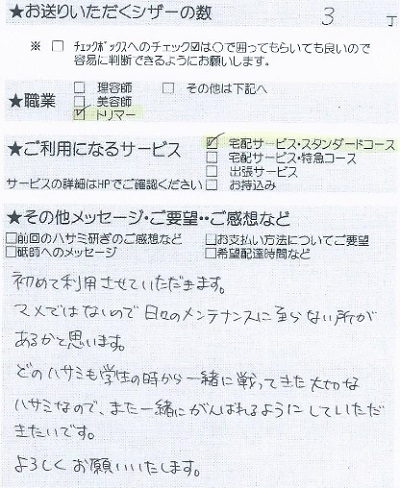 ★お送りいただくシザーの数 3 丁
※ □ チェックボックスへのチェック☑は○で囲ってもらいても良いので
容易に判断できるようにお願いします。
★職業
□ 理容師 □ その他は下記へ
□ 美容師
☑ トリマー
★ご利用になるサービス
サービスの詳細はHPでご確認ください
☑ 宅配サービス・スタンダードコース
□ 宅配サービス・特急コース
□ 出張サービス
□ お持込み
★その他メッセージ・ご要望・・ご感想など
□前回のハサミ研ぎのご感想など □お支払い方法についてご要望
□砥師へのメッセージ □希望配達時間など
初めて利用させていただきます。
マメではないので日々のメンテナンスに至らない所が
あるかと思います。
どのハサミも学生の時から一緒に戦ってきた大切な
ハサミなので、また一緒にがんばれるようにしていただ
きたいです。
よろしくお願いいたします。